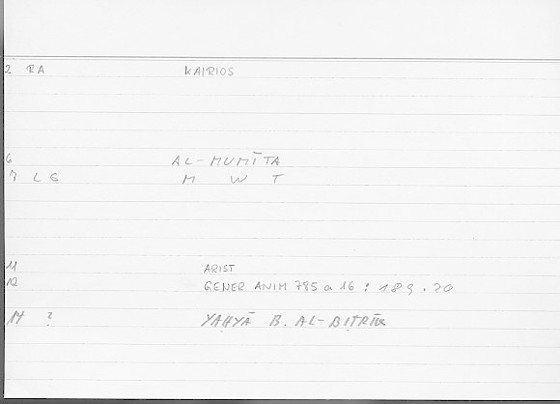 2 RA KAIRIOS
6 AL-MUMĪTA
7 LG M W T
11 ARIST
12 GENER ANIM 785 a 16 : 189.20
14 ? YAḤYĀ B. AL-BIṬRĪQ